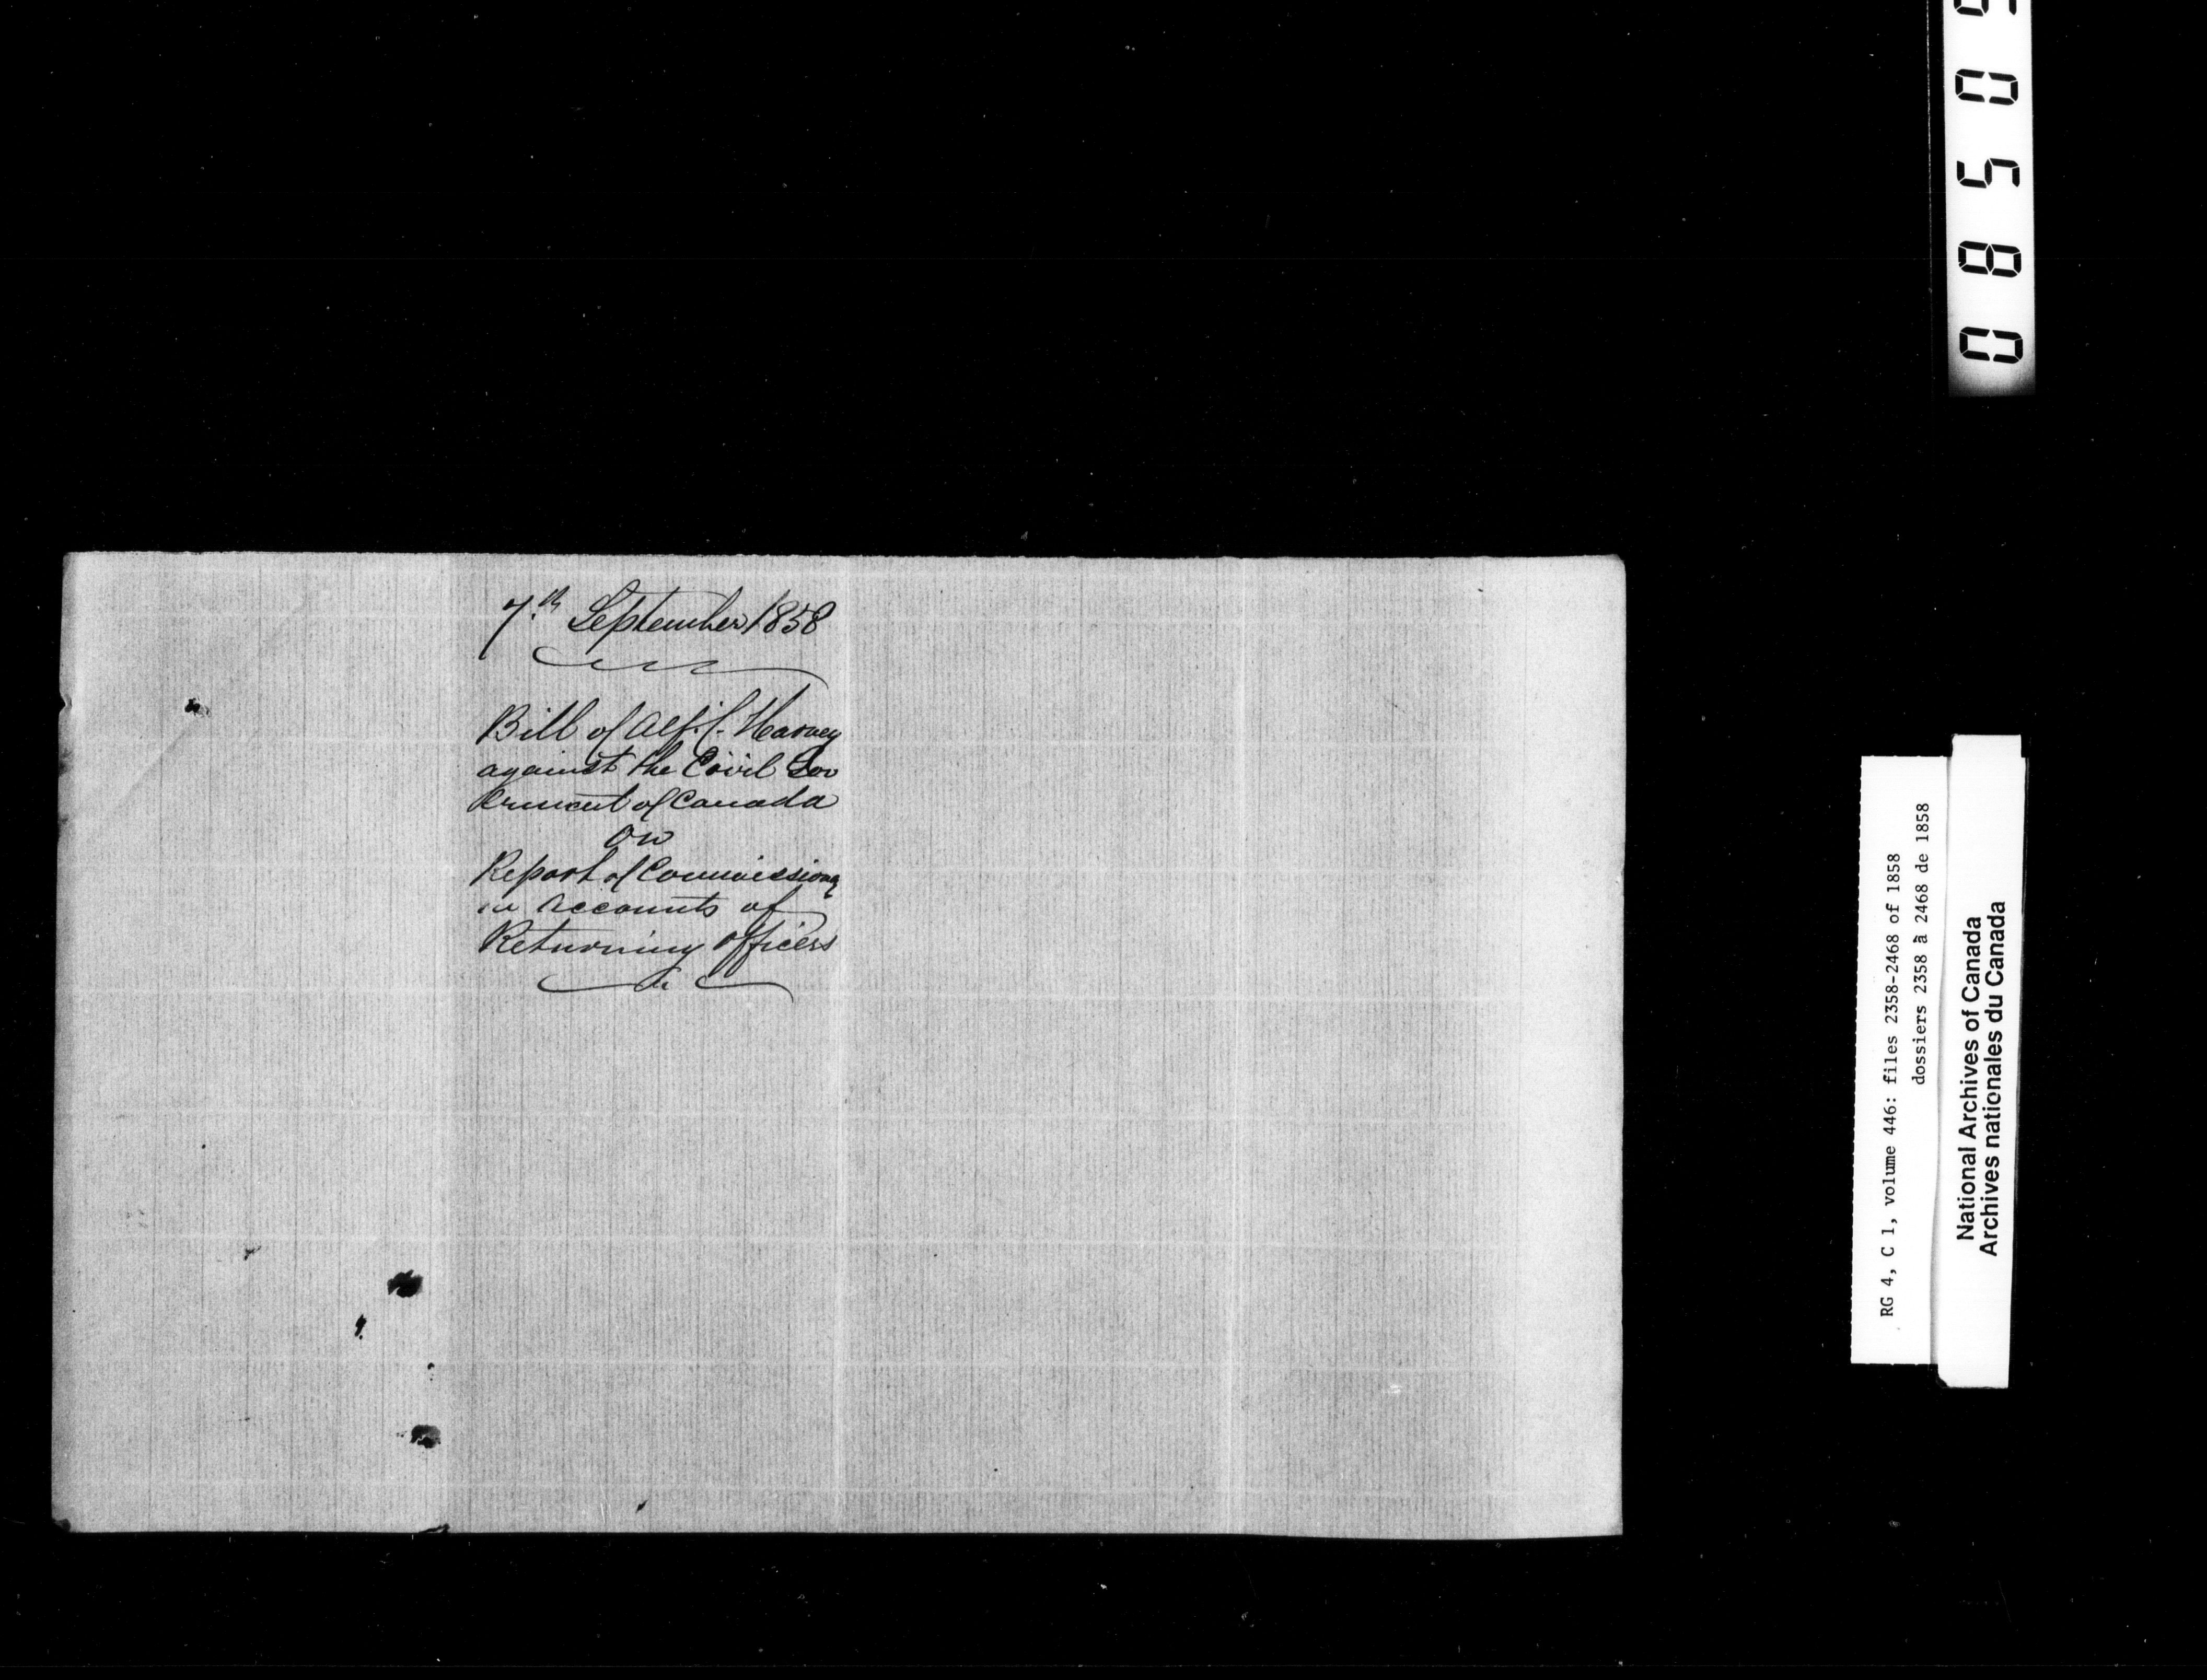 7.th September 1858
Bill of Alf. C. Harvey
against the Civil Gov
ernment of Canada
on
Report of Commissions
in Accounts of
Returning Officers
&c
RG 4, C 1, volume 446: files 2358-2468 of 1858
dossiers 2358 à 2468 de 1858
National Archives of Canada
Archives nationales du Canada
0850